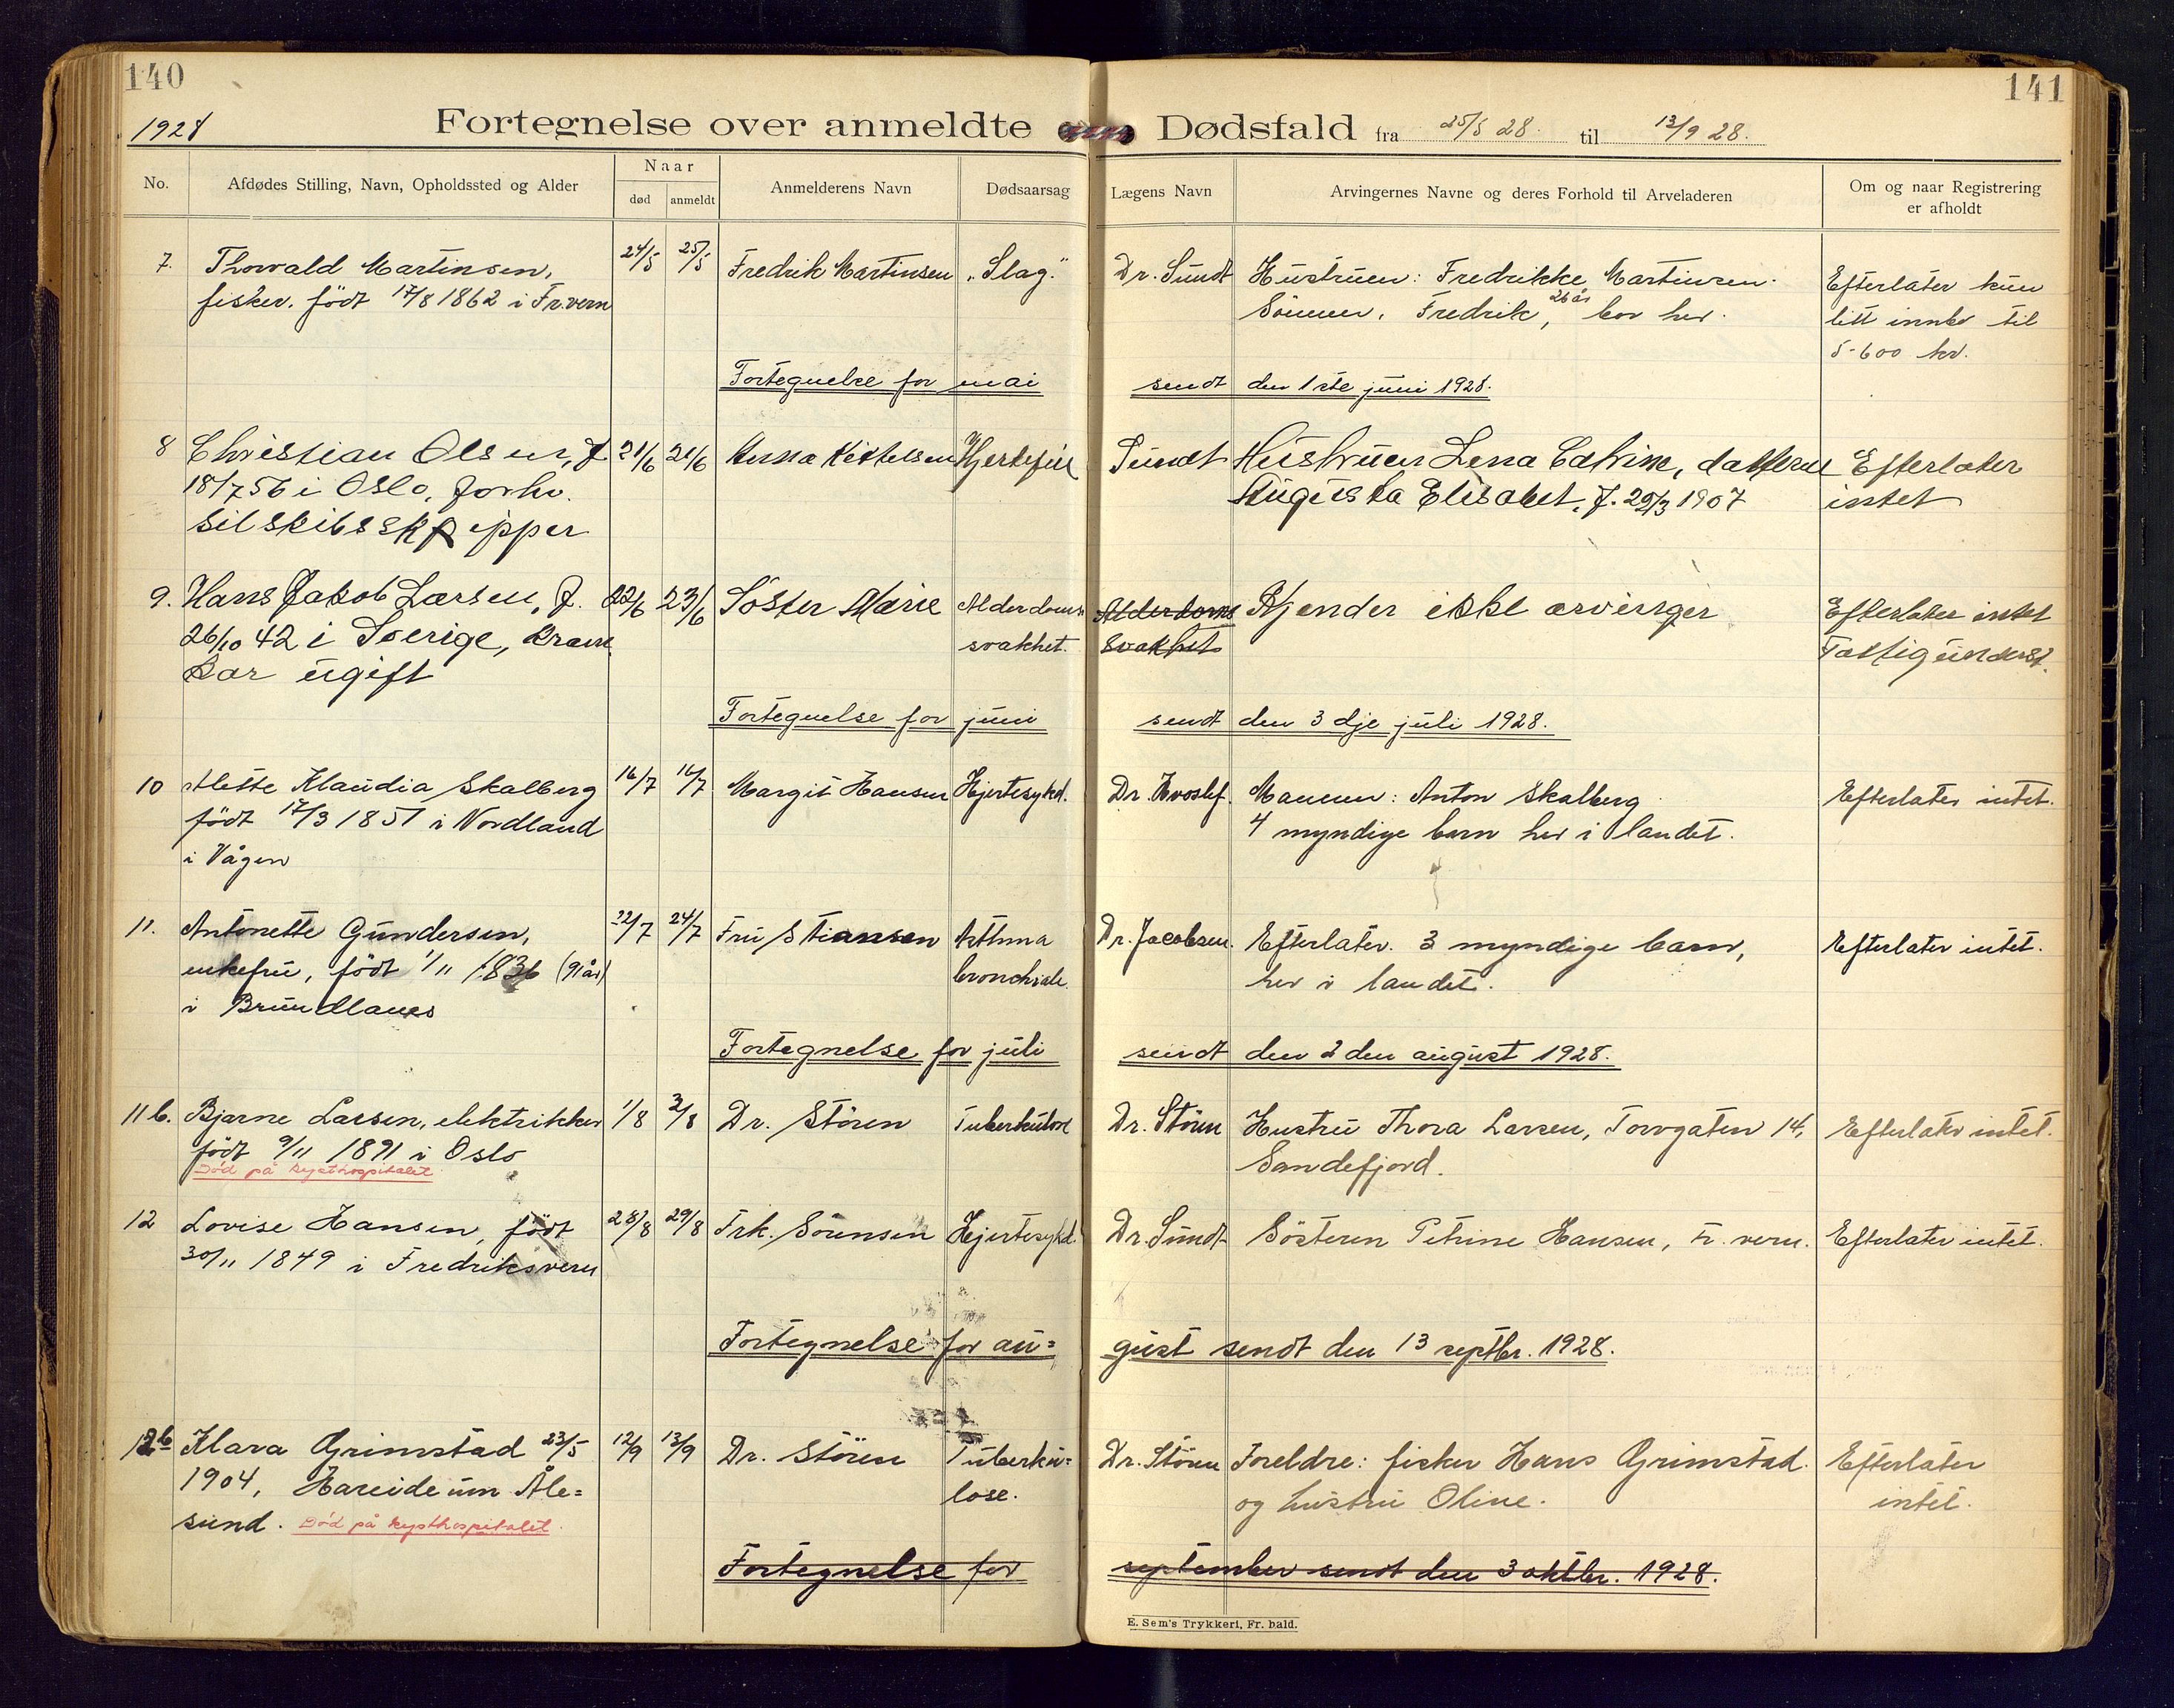 140
141
1928
Fortegnelse over anmeldte Dødsfald fra 25/5 28. til 13/9 28.
No.
Afdødes Stilling, Navn, Opholdssted og Alder
Naar
død
anmeldt
Anmelderens Navn
Dødsaarsag
Lægens Navn
Arvingernes Navne og deres Forhold til Arveladeren
Om og naar Registrering
er afholdt
7. Thorvald Martinsen, 24/5 25/5 Fredrik Martinsen „Slag.“ Dr. Sundt Hustruen: Fredrikke Martinsen. Efterlater kun
fisker. født 17/8 1862 i Fr.vern Sønnen, Fredrik, 26 år bor her. litt innbo til
5-600 kr.
Fortegnelse for mai sendt den 1ste juni 1928.
8 Christian Olsen, f. 21/6 21/6 Anna Kittelsen Hjertefeil Sundt Hustruen Lena Catrine, datteren Efterlater
18/7 56 i Oslo, forhv. Augusta Elisabet, f. 29/3 1907 intet
seilskibsskipper
9. Hans Jakob Larsen, f. 22/6 23/6 Søster Marie Alderdoms- Alderdoms Kjender ikke arvinger Efterlater intet
26/10 42 i Sverige, Kram svakhet. svakhet Fattigunderst.
kar ugift
Fortegnelse for juni sendt den 3dje juli 1928.
10 Alette Klaudia Skalberg 16/7 16/7 Margit Hansen Hjertesykd. Dr. Hvoslef. Mannen: Anton Skalberg Efterlater intet.
født 17/3 1851 i Nordland 4 myndige barn her i landet.
i Vågen
11. Antonette Gundersen, 22/7 24/7 Fru Stiansen Asthma Dr. Jacobsen. Efterlater. 3 myndige barn, Efterlater intet.
enkefru, født 1/11 1836 (91 år) bronchiale. her i landet.
i Brunllanes
Fortegnelse for juli sendt den 2den august 1928.
11 b. Bjarne Larsen, elektrikker 1/8 3/8 Dr. Støren Tuberkulose Dr. Støren Hustru Thora Larsen, Torvgaten 14, Efterlater intet.
født 9/11 1891 i Oslo Sandefjord.
Død på kysthospitalet
12 Lovise Hansen, født 28/8 29/8 Frk. Sørensen Hjertesykd. Dr. Sundt Søsteren Petrine Hansen, Fr. vern. Efterlater intet.
30/11 1849 i Fredriksvern
Fortegnelse for au=gust sendt den 13 septbr. 1928.
12b Klara Grimstad 23/5 12/9 13/9 Dr. Støren Tuberku= Dr. Støren Foreldre: fisker Hans Grimstad. Efterlater
1904, Hareide um Åle= lose. og hustru Oline. intet.
sund. Død på kysthospitalet.
Fortegnelse for september sendt den 3 oktbr. 1928.
E. Sem's Trykkeri, Fr. hald.